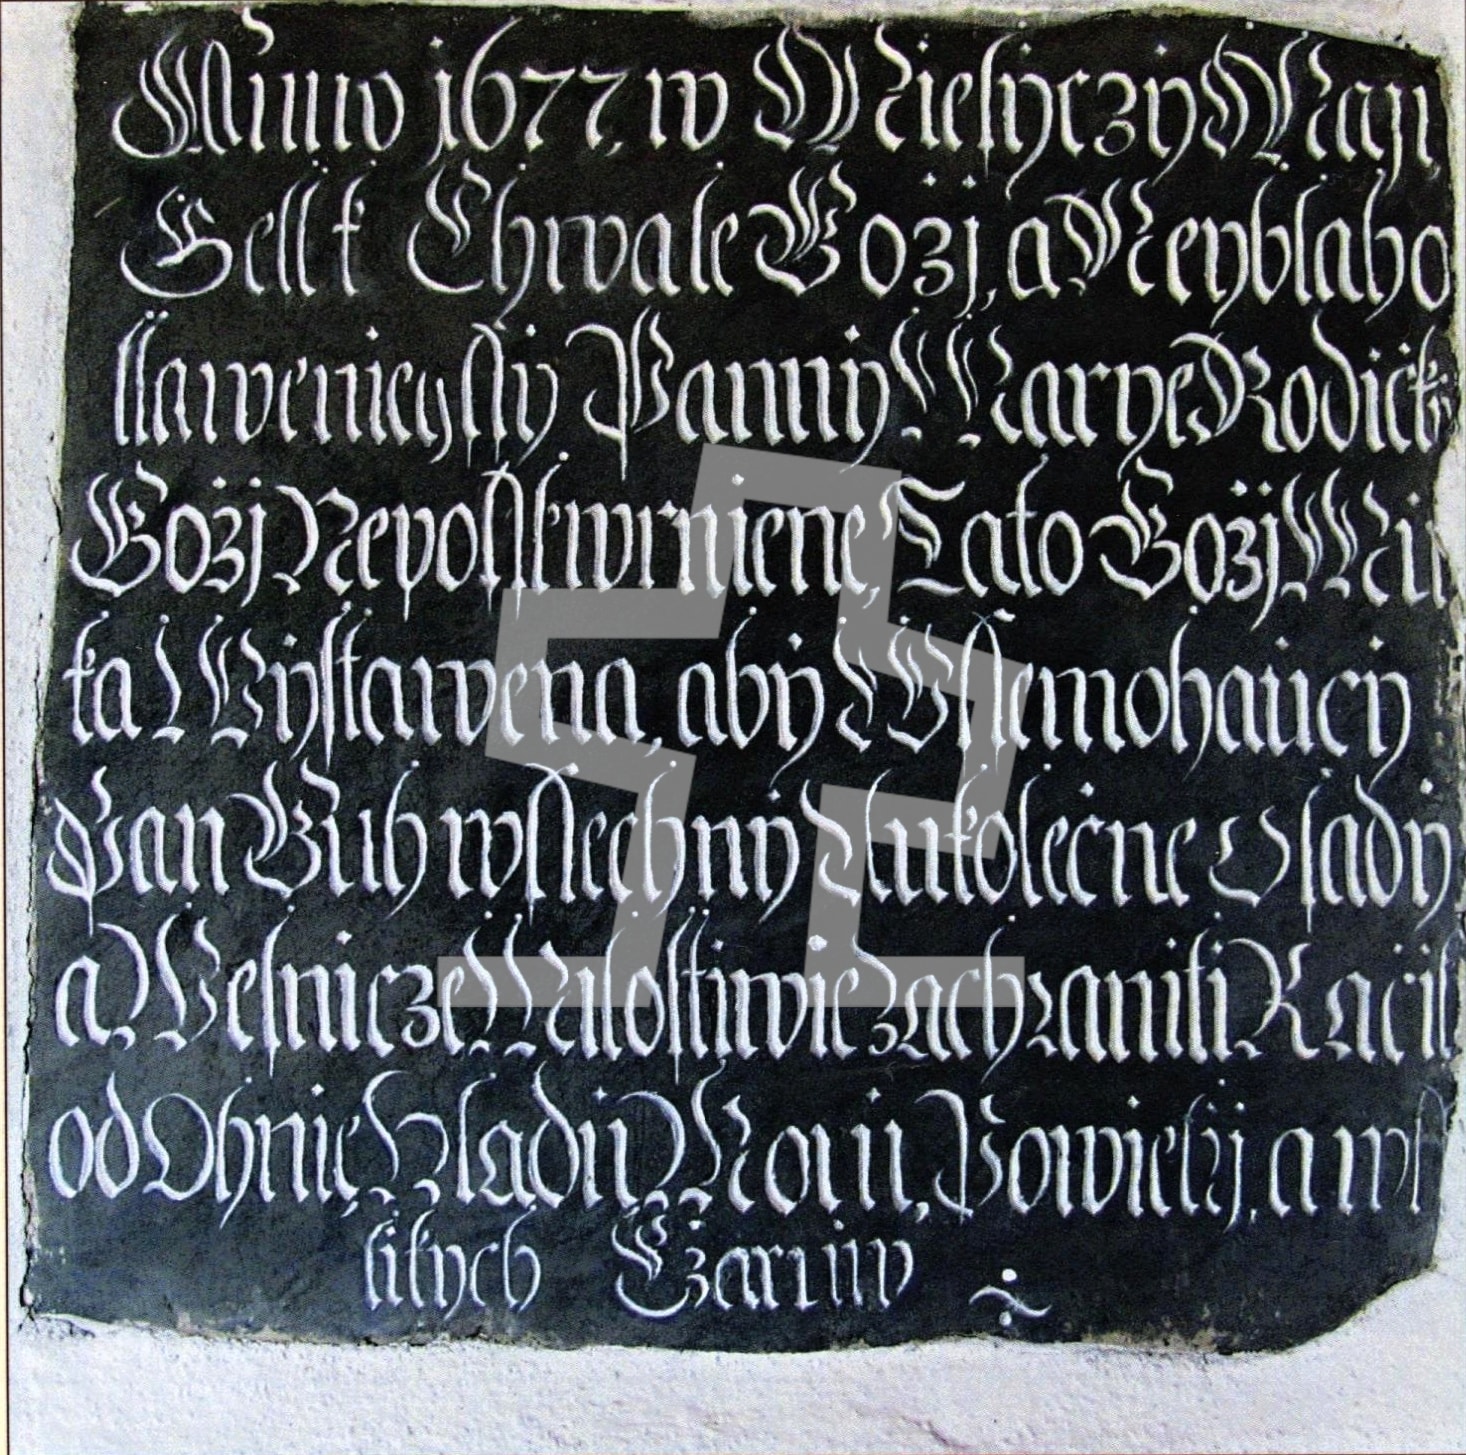 Anno 1677, w Miesyczy Maji,
Gest k Chwale Bozj, a Neyblaho
slawenieyssy Panny Marye Rodičky
Božj Neposskwrniene, Tato Božj Mu
ka Wystawena, aby Wssemohaucy
Pan Buh wssechny Aukolecne Usady
a Wesnicze Milostiwie Zachraniti Račil
od Ohnie, Hladu, Moru, Powietrj, a wss
likych Czaruw